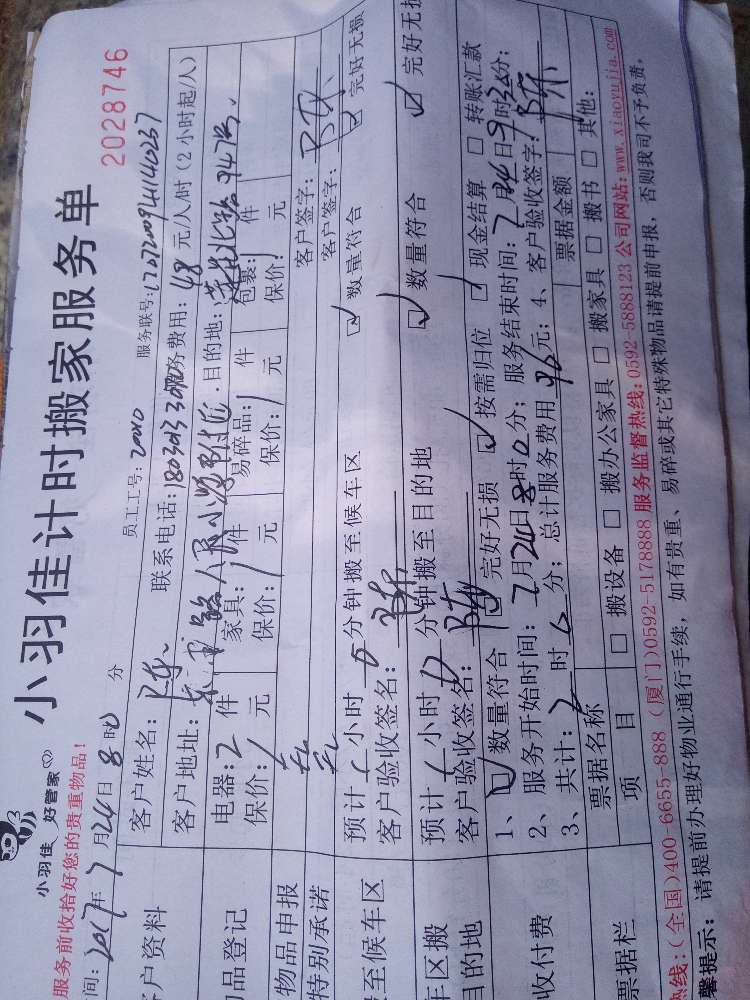 小羽佳计时搬家服务单
小羽佳 好管家
2028746
服务前收拾好您的贵重物品!
间: 2017年7月24日8时0分
员工工号: 20040
服务联号: 17072009441140237
户资料
客户姓名: 陈
联系电话:
务费用: 48元/人/时 (2小时起/人)
客户地址:
目的地:
品登记
电器: 2件
家具: 1件
易碎品: 1件
包裹: 1件
保价: 1元
保价: 1元
保价: 1元
保价: 1元
物品申报
无
客户签字: 陈
特别承诺
无
客户签字:
至候车区
预计 小时 分钟搬至候车区
☑ 数量符合
☑ 完好无损
客户验收签名: 陈
车区搬
目的地
预计 小时 分钟搬至目的地
☑ 数量符合
☑ 完好无损
客户验收签名: 陈
收付费
1、☑ 数量符合 ☑ 完好无损 ☑ 按需归位 ☑ 现金结算 □ 转账汇款
2、服务开始时间: 7月24日8时0分; 服务结束时间: 7月24日9时 分;
3、共计: 2时0分; 总计服务费用 96元; 4、客户验收签字: 陈
票据栏
票据名称
票据金额
项 目
□ 搬设备 □ 搬办公家具 □ 搬家具 □ 搬书 □ 其他:
热线:(全国)400-6655-888 (厦门)0592-5178888 服务监督热线: 0592-5888123 公司网站: www.xiaoyujia.com
馨提示: 请提前办理好物业通行手续, 如有贵重、易碎或其它特殊物品请提前申报, 否则我司不予负责。